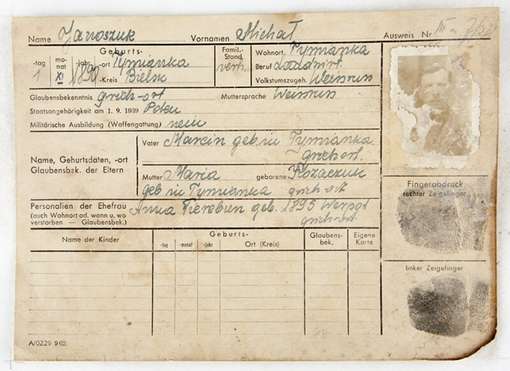 Name Janoszuk Vornamen Michał Ausweis Nr. III -
Geburts- Famil.-Stand Wohnort. Tymianka
-tag mo-nat -jahr -ort Tymianka verh. Beruf
1 XI Kreis Bielsk Volkstumszugeh. Weissrus
Glaubensbekenntnis Grech-ort Muttersprache Weissrus
Staatsangehörigkeit am 1. 9. 1939 Polen
Militärische Ausbildung (Waffengattung) nein
Name, Geburtsdaten, -ort Glaubensbek. der Eltern
Vater Marcin geb in Tymianka
grech ort.
Mutter Maria geborene Kozaczuk
geb in Tymianka grch ort
Personalien der Ehefrau Anna geb. 1895
(auch Wohnort od. wann u. wo verstorben — Glaubensbek.)
Fingerabdruck
rechter Zeigefinger
linker Zeigefinger
Name der Kinder Geburts- Glaubens-bek. Eigene Karte
-tag -monat -jahr Ort (Kreis)
A/0229 9 02.